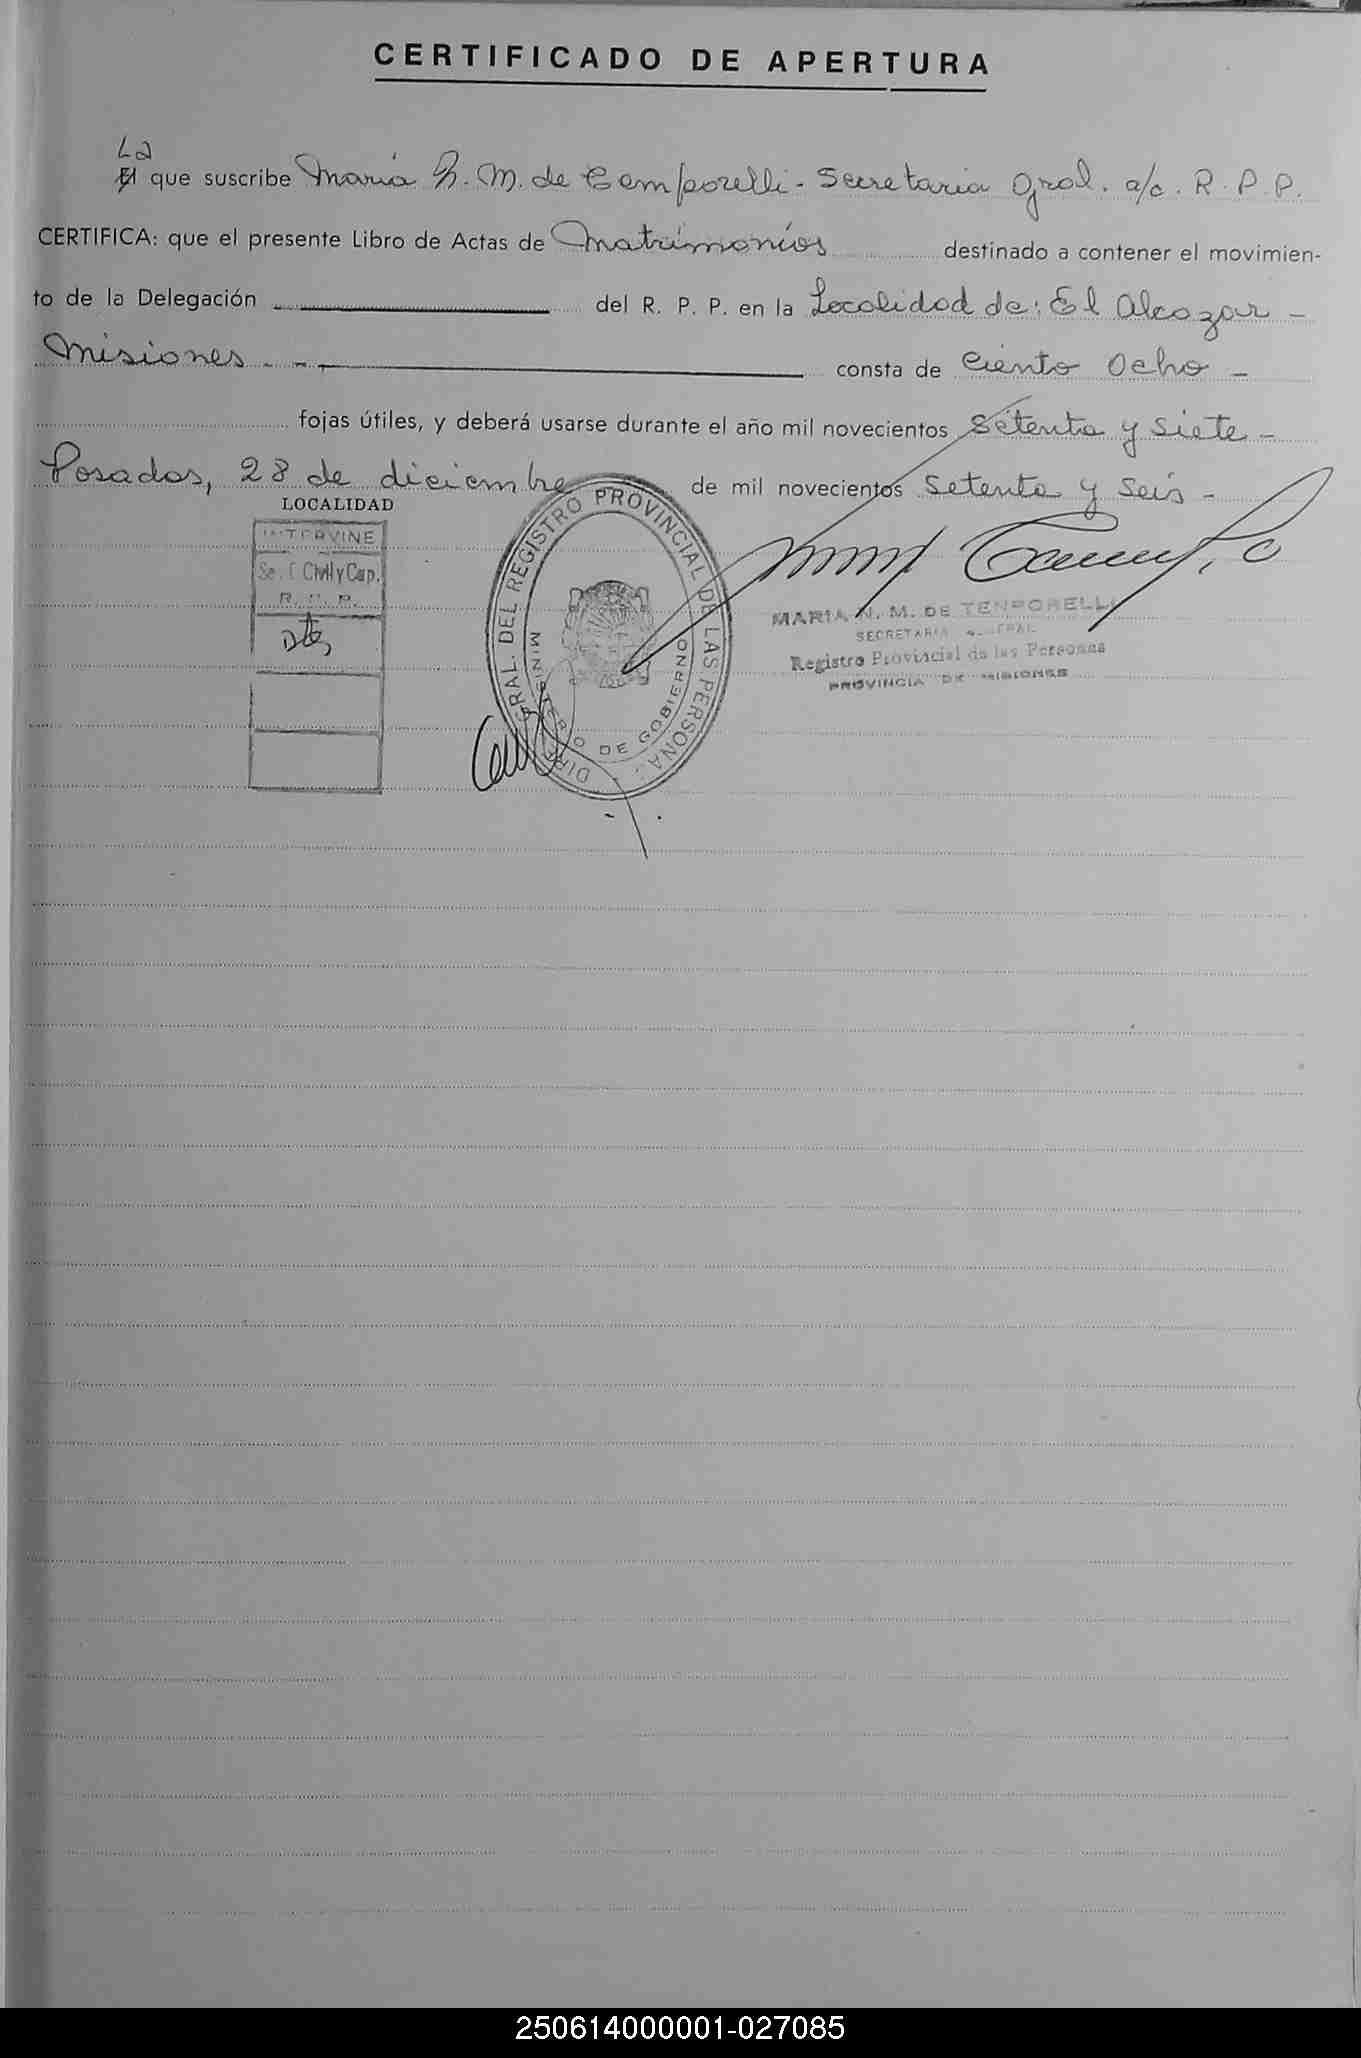 CERTIFICADO DE APERTURA
La
El que suscribe María N. M. de Temporelli - Secretaria Gral. a/c. R. P. P.
CERTIFICA: que el presente Libro de Actas de Matrimonios destinado a contener el movimien-
to de la Delegación del R. P. P. en la Localidad de: El Alcazar -
Misiones - - consta de Ciento Ocho -
fojas útiles, y deberá usarse durante el año mil novecientos Setenta y Siete -
Posadas, 28 de diciembre de mil novecientos Setenta y Seis -
LOCALIDAD
INTERVINE
Civil y Cap.
R. P. P.
DIR. GRAL. DEL REGISTRO PROVINCIAL DE LAS PERSONAS
MINISTERIO DE GOBIERNO
MARIA N. M. DE TEMPORELLI
SECRETARIA GENERAL
Registro Provincial de las Personas
PROVINCIA DE MISIONES
250614000001-027085